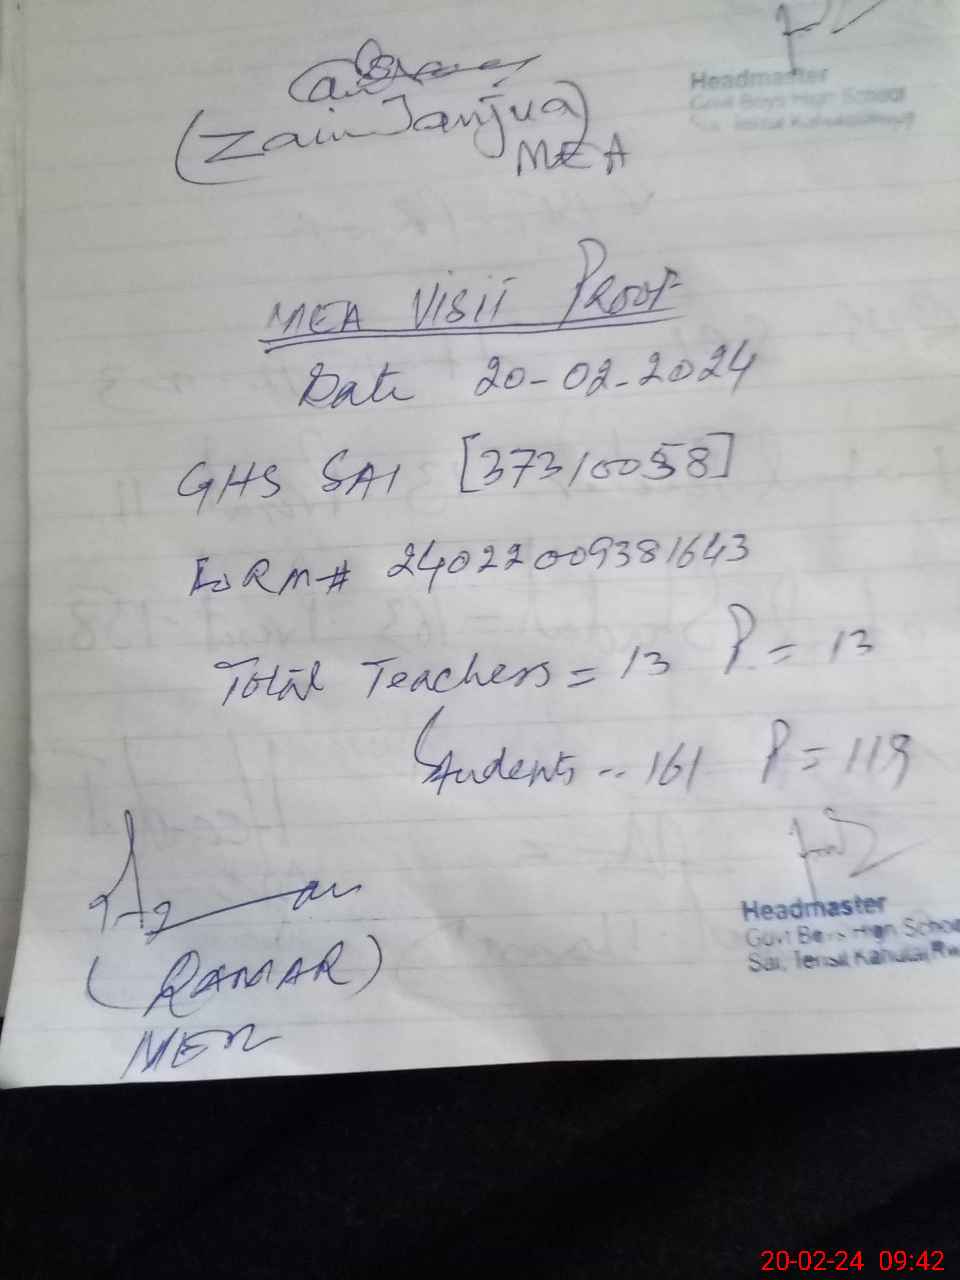 Headmaster
Govt Boys High School
(Zain Janjua)
MEA
MEA VISIT PROOF
Date 20-02-2024
GHS SAI [37310058]
FORM# 240220009381643
Total Teachers = 13 P = 13
Students -- 161 P = 119
Headmaster
Govt Boys High School
Sai, Tehsil Kahuta,
(QAMAR)
20-02-24 09:42